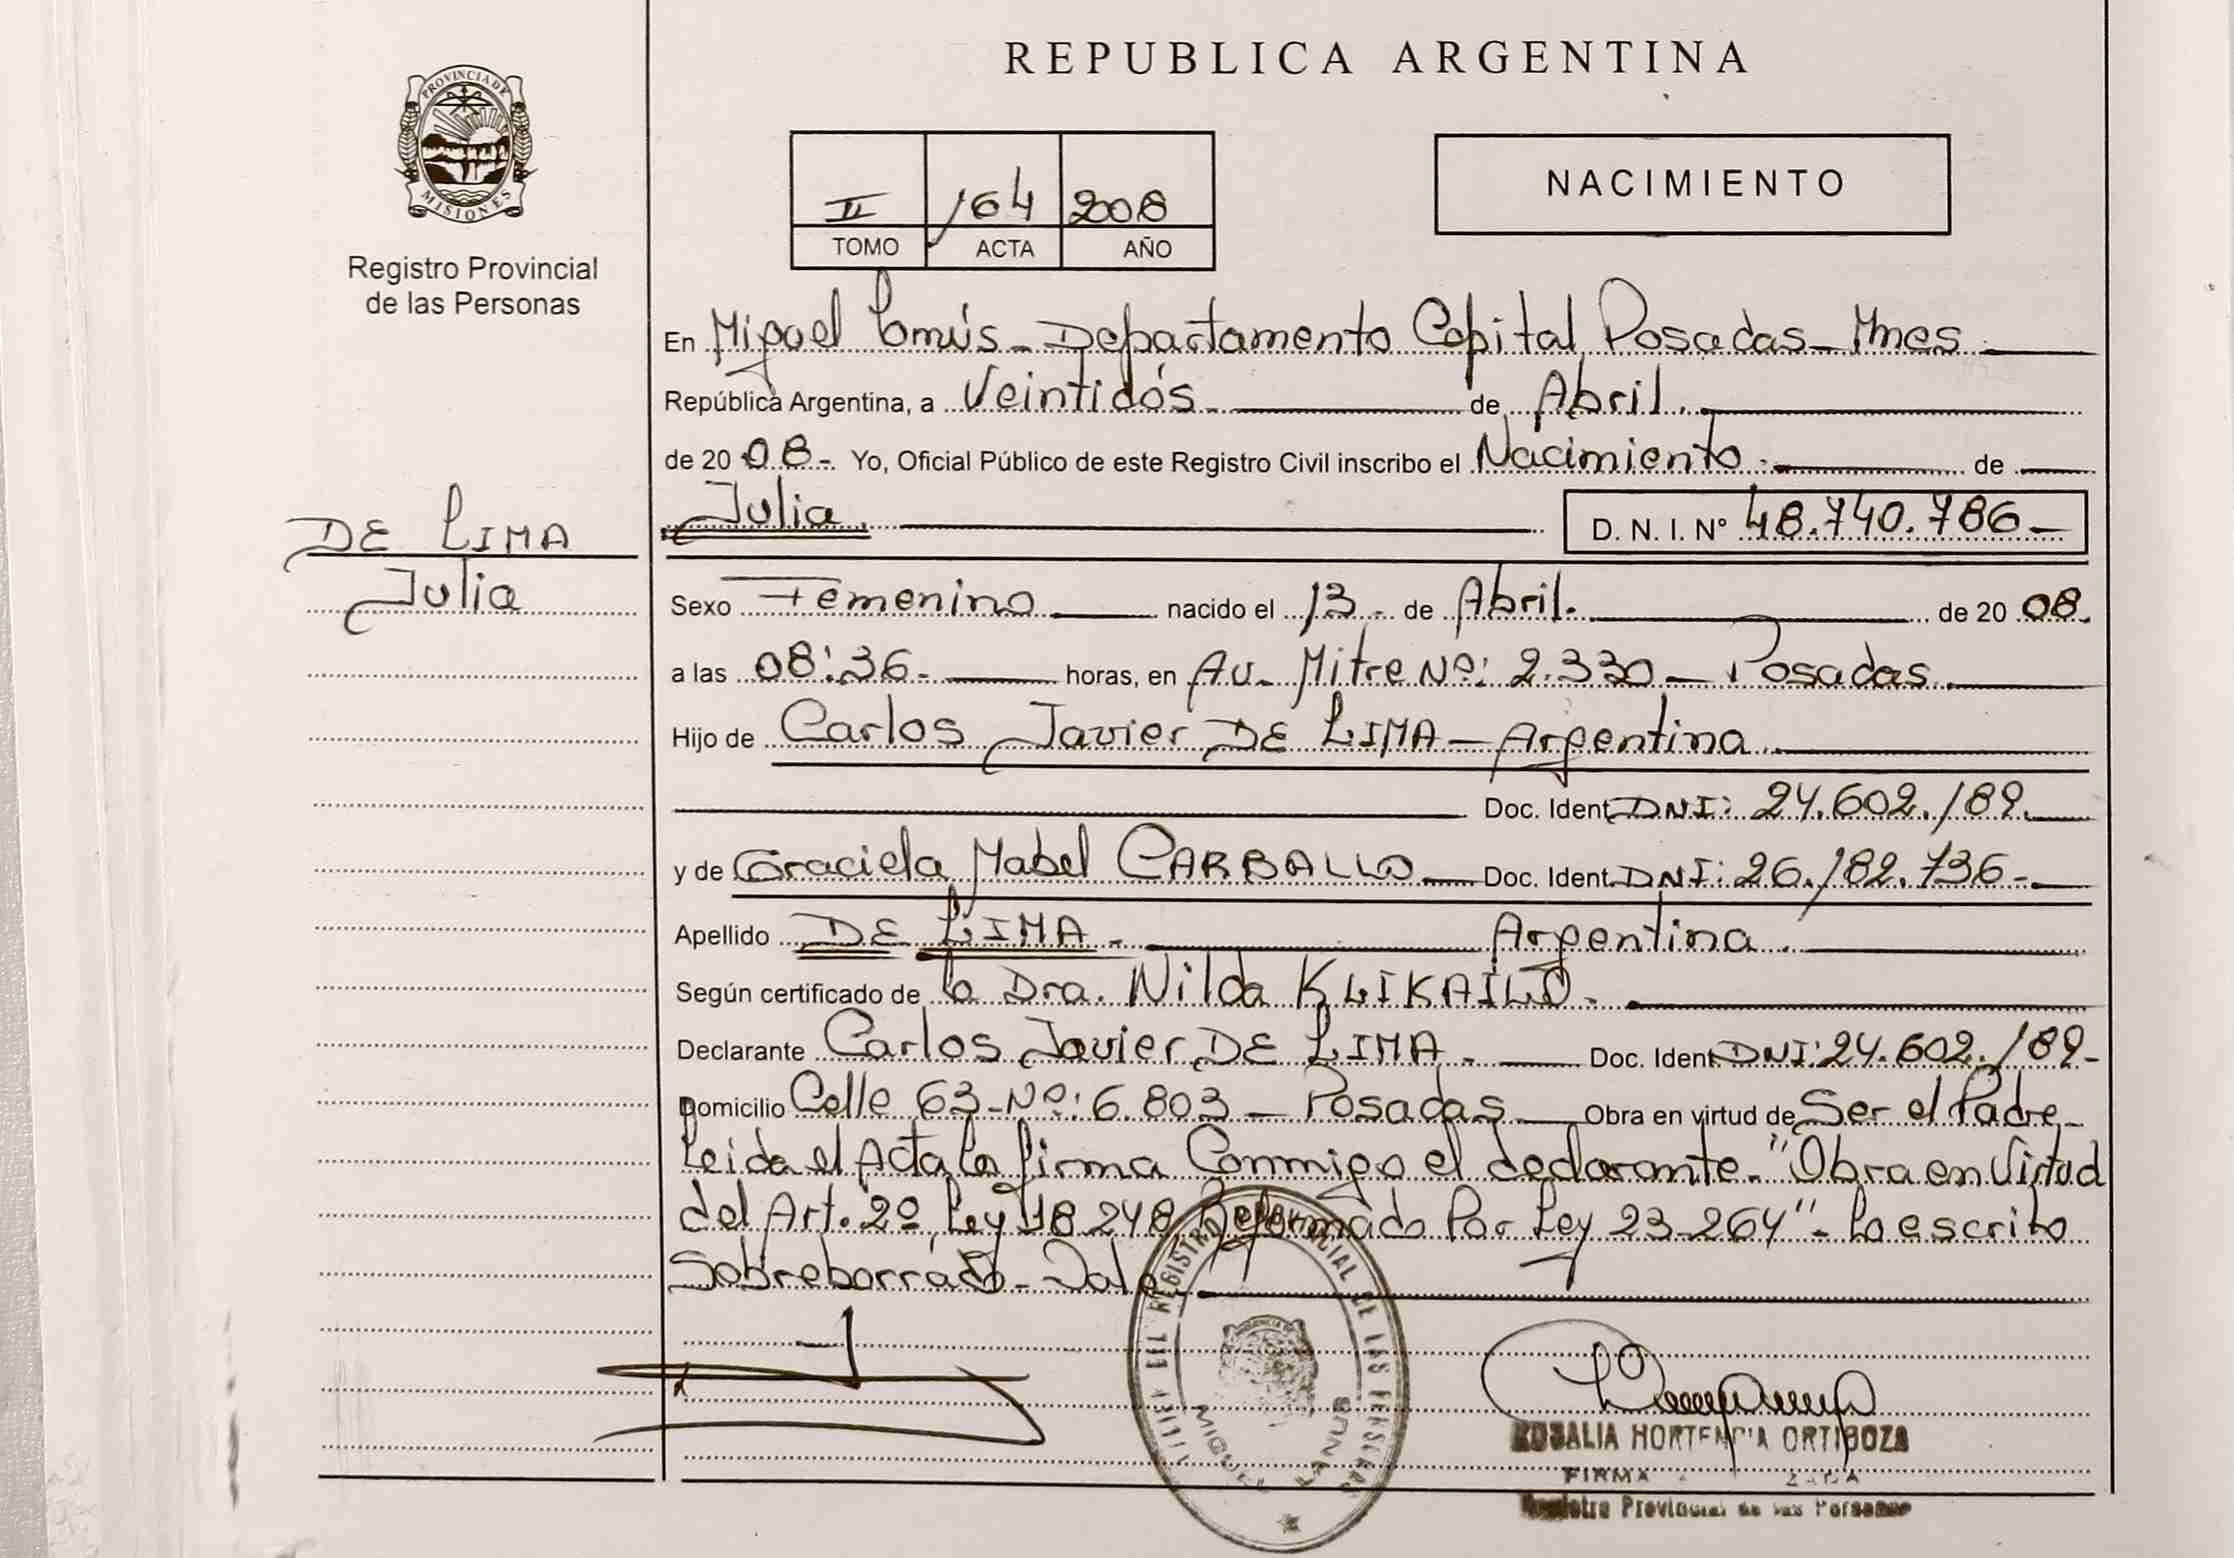 REPUBLICA ARGENTINA
PROVINCIA DE
MISIONES
Registro Provincial
de las Personas
II 164 2008
TOMO ACTA AÑO
NACIMIENTO
En Miguel Lanús - Departamento Capital Posadas - Mnes
República Argentina, a Veintidós de Abril.
de 20 08 - Yo, Oficial Público de este Registro Civil inscribo el Nacimiento de
Julia D. N. I. Nº 48.740.786 -
DE LIMA
Julia
Sexo Femenino nacido el 13 - de Abril. de 20 08.
a las 08:36 - horas, en Av. Mitre Nº: 2.330 - Posadas
Hijo de Carlos Javier DE LIMA - Argentina
Doc. Ident. DNI: 24.602.189.
y de Graciela Mabel CARBALLO - Doc. Ident. DNI: 26.182.736 -
Apellido DE LIMA - Argentina.
Según certificado de la Dra. Nilda KLIKAILO.
Declarante Carlos Javier DE LIMA - Doc. Ident. DNI: 24.602.189 -
Domicilio Calle 63 - Nº: 6.803 - Posadas Obra en virtud de Ser el Padre
Leida el Acta la firma Conmigo el declarante. "Obra en Virtud
del Art. 2º Ley 18.248 Reformado Por Ley 23.264" - Lo escrito
Sobreborrado - Vale
DEL REGISTRO PROVINCIAL DE LAS PERSONAS
MIGUEL LANUS
ROSALIA HORTENCIA ORTIGOZA
FIRMA
Registro Provincial de las Personas